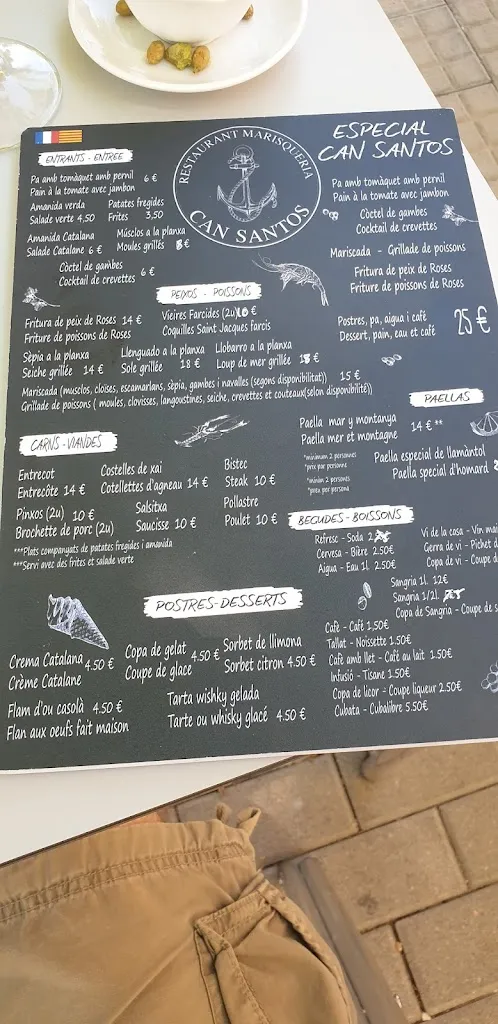 ENTRANTS - ENTREE
Pa amb tomàquet amb pernil 6 €
Pain à la tomate avec jambon
Amanida verda
Salade verte 4,50
Patates fregides
Frites 3,50
Amanida Catalana
Salade Catalane 6 €
Músclos a la planxa
Moules grillés
Còctel de gambes
Cocktail de crevettes 6 €
RESTAURANT MARISQUERIA
CAN SANTOS
ESPECIAL
CAN SANTOS
Pa amb tomàquet amb pernil
Pain à la tomate avec jambon
Còctel de gambes
Cocktail de crevettes
Mariscada - Grillade de poissons
Fritura de peix de Roses
Friture de poissons de Roses
Postres, pa, aigua i cafè
Dessert, pain, eau et café
25 €
PEIXOS - POISSONS
Fritura de peix de Roses 14 €
Friture de poissons de Roses
Vieires Farcides (2u)
Coquilles Saint Jacques farcis
Sèpia a la planxa
Seiche grillée 14 €
Llenguado a la planxa
Sole grillée 18 €
Llobarro a la planxa
Loup de mer grillée
Mariscada (musclos, cloïses, escamarlans, sèpia, gambes i navalles (segons disponibilitat)) 15 €
Grillade de poissons ( moules, clovisses, langoustines, seiche, crevettes et couteaux(selon disponibilité))
CARNS - VIANDES
Entrecot
Entrecôte 14 €
Costelles de xai
Cotellettes d'agneau 14 €
Bistec
Steak 10 €
Pinxos (2u)
Brochette de porc (2u) 10 €
Salsitxa
Saucisse 10 €
Pollastre
Poulet 10 €
***Plats companyats de patates fregides i amanida
***Servi avec des frites et salade verte
PAELLAS
Paella mar y montanya
Paella mer et montagne 14 €**
*minimum 2 personnes
*prix par personne
*minim 2 persones
*preu per persona
Paella especial de llamàntol
Paella special d'homard
BEGUDES - BOISSONS
Refresc - Soda
Cervesa - Bière 2.50€
Aigua - Eau 1l 2.50€
Vi de la casa - Vin
Gerra de vi - Pichet
Copa de vi - Coupe
Sangria 1l. 12€
Sangria 1/2l.
Copa de Sangria - Coupe de
Cafè - Café 1,50€
Tallat - Noissette 1.50€
Cafè amb llet - Café au lait 1.50€
Infusió - Tisane 1.50€
Copa de licor - Coupe liqueur 2.50€
Cubata - Cubalibre 5.50€
POSTRES-DESSERTS
Crema Catalana
Crème Catalane 4.50 €
Copa de gelat
Coupe de glace 4.50 €
Sorbet de llimona
Sorbet citron 4.50 €
Flam d'ou casolà
Flan aux oeufs fait maison 4.50 €
Tarta wishky gelada
Tarte ou whisky glacé 4.50 €